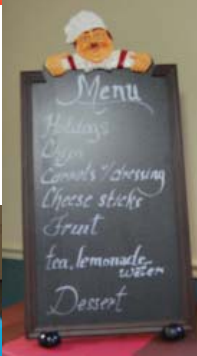 Menu
Hotdogs
Chips
Carrots w/dressing
Cheese sticks
Fruit
tea, lemonade,
water
Dessert